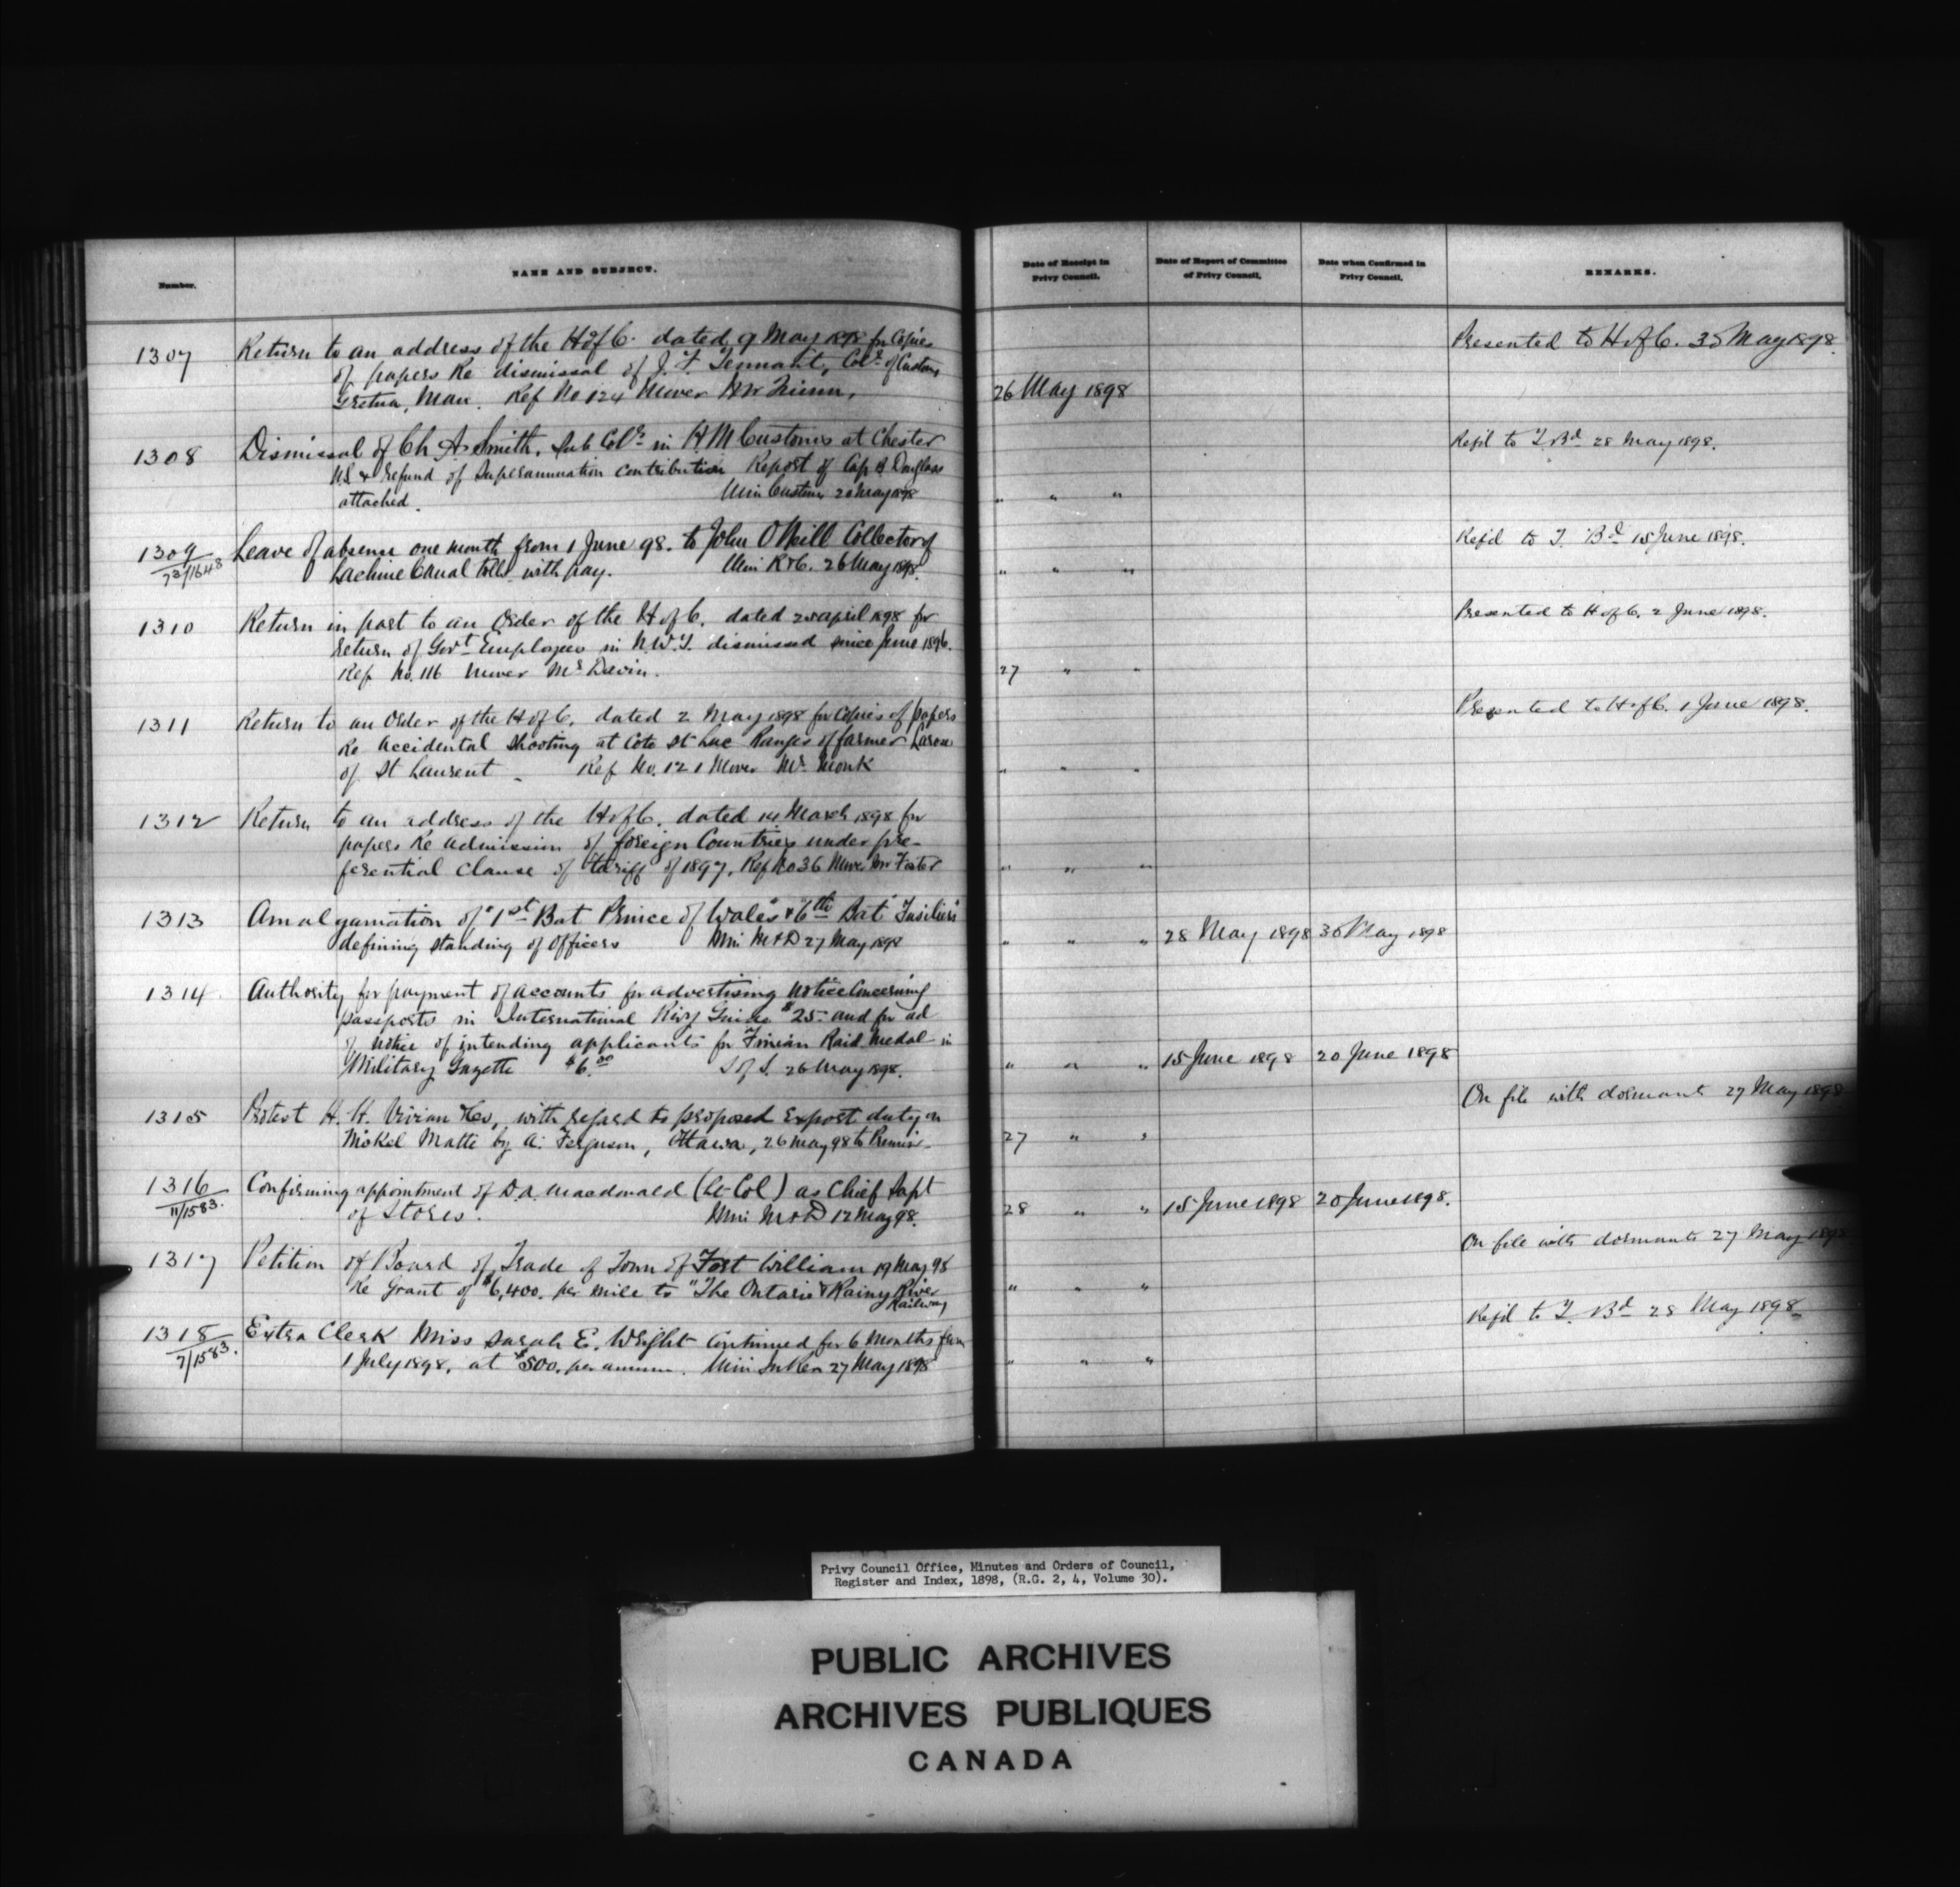 Number.
NAME AND SUBJECT.
Date of Receipt in Privy Council.
Date of Report of Committee of Privy Council.
Date when Confirmed in Privy Council.
REMARKS.
1307 Return to an address of the H of C. dated 9 May 1898 for Copies
of papers Re dismissal of J. F. Tennant, Colr. of Customs
Gretna, Man. Ref No 124 Mover
26 May 1898
Presented to H of C. 30 May 1898.
1308 Dismissal of Ch A. Smith, Sub Colr. in H M Customs at Chester
NS & refund of Superannuation contribution Report of Cap A Douglass
attached. Min Customs 20 May 1898
" " "
Refd to T. Bd 28 May 1898.
1309 Leave of absence one month from 1 June 98. to John O Neill Collector of
Lachine Canal tolls with pay. Min R & C. 26 May 1898.
" " "
Refd to T. Bd 15 June 1898.
1310 Return in part to an Order of the H of C. dated 25 april 1898 for
return of Govt Employees in N.W.T. dismissed since June 1896.
Ref No. 116 Mover Mr Davin.
27 " "
Presented to H of C. 2 June 1898.
1311 Return to an Order of the H of C. dated 2 May 1898 for Copies of papers
Re Accidental Shooting at Cote St Luc Ranges of farmer
of St Laurent. Ref No. 121 Mover Mr. Monk
" " "
Presented to H of C. 1 June 1898.
1312 Return to an address of the H of C. dated 14 March 1898 for
papers Re admission of foreign Countries under pre-
ferential Clause of tariff of 1897. Ref No 36 Mover Mr Foster
" " "
1313 Amalgamation of "1st Bat Prince of Wales" & 6th Bat "Fusiliers"
defining standing of Officers Min M & D 27 May 1898
" " "
28 May 1898
30 May 1898
1314 Authority for payment of accounts for advertising notice Concerning
passports in International Guide $25- and for ad
of notice of intending applicants for Finian Raid Medal in
Military Gazette $6.00 S of S. 26 May 1898.
" " "
15 June 1898
20 June 1898
1315 Protest H. H. Vivian & Co, with regard to proposed Export duty on
Nickel Matte by A. Ferguson, Ottawa, 26 May 98 to Premier
27 " "
On file with dormants 27 May 1898
1316 Confirming appointment of D. A. Macdonald (Lt-Col) as Chief Supt
11/1583.
of Stores. Min M & D 12 May 98.
28 " "
15 June 1898
20 June 1898.
1317 Petition of Board of Trade of Town of Fort William 19 May 98
Re Grant of $6,400. per mile to "The Ontario & Rainy River
Railway
" " "
On file with dormants 27 May 1898
1318 Extra Clerk Miss Sarah E. Wright Continued for 6 Months from
7/1583.
1 July 1898, at $500. per annum. Min In Rev 27 May 1898
" " "
Refd to T. Bd 28 May 1898
Privy Council Office, Minutes and Orders of Council,
Register and Index, 1898, (R.G. 2, 4, Volume 30).
PUBLIC ARCHIVES
ARCHIVES PUBLIQUES
CANADA